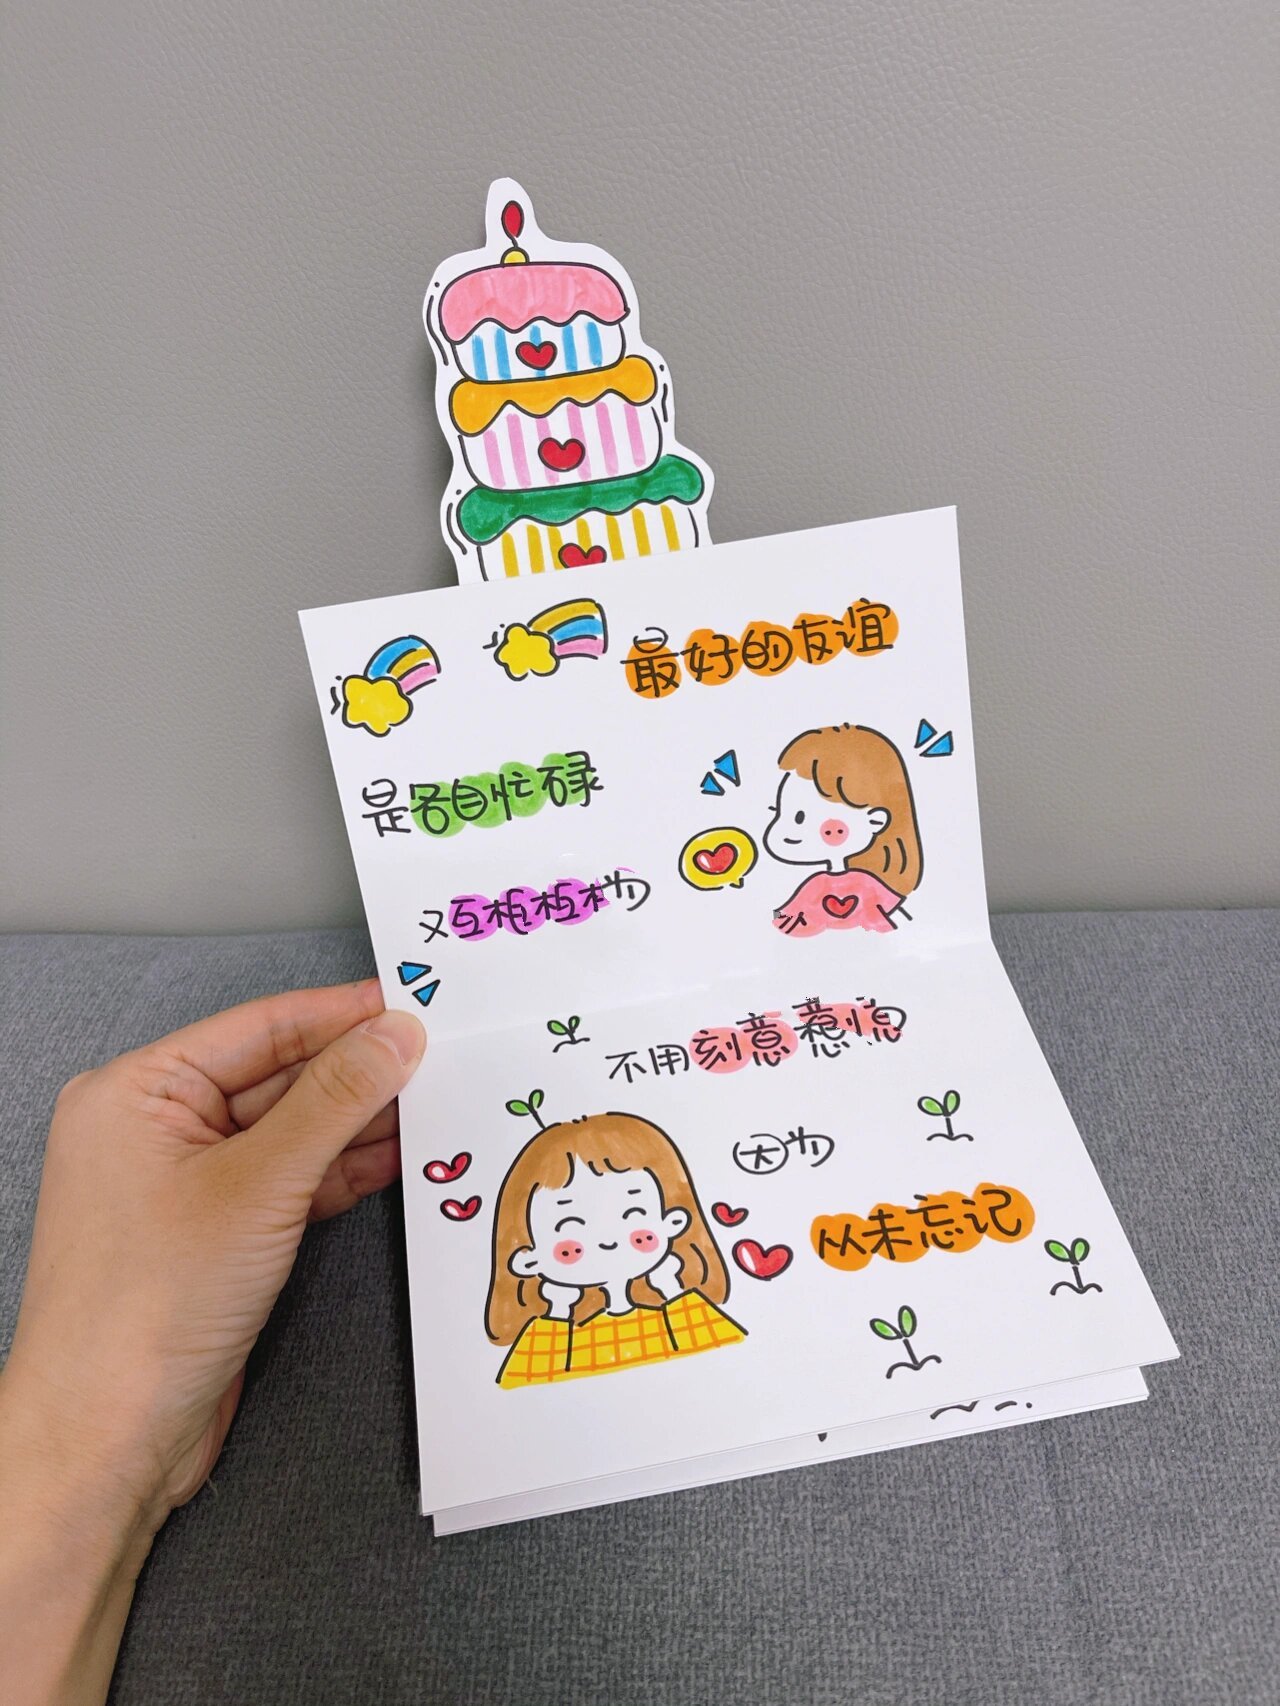 最好的友谊
是各自忙碌
又互相
不用刻意
因为
从未忘记